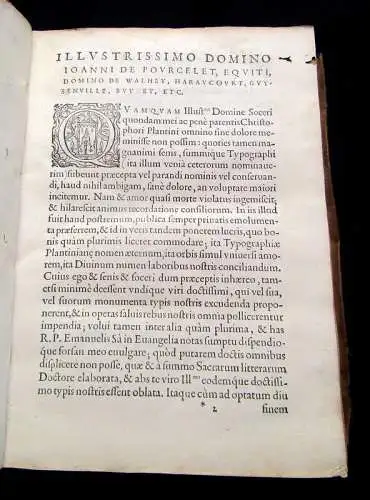 ILLVSTRISSIMO DOMINO
IOANNI DE POVRCELET, EQVITI,
DOMINO DE WALHEY, HARAVCOVRT, GVY-
BENVILLE, BVY ET, ETC.
QVAMQVAM Illust.mo Domine Soceri
quondam mei ac penè parentis Christo-
phori Plantini omnino sine dolore me-
minisse non possim: quoties tamen ma-
gnanimi senis, summique Typographi
(ita illum veniâ ceterorum nominaue-
rim) subeunt præcepta vel parandi nominis vel conseruan-
di, haud nihil ambigam, sanè dolore, an voluptate maiori
incitemur. Nam & amor quasi morte violatus ingemiscit,
& hilarescit animus recordatione consiliorum. In iis illud
fuit haud postremum, publica semper priuatis emolumen-
ta præferrem, & id in veris tandem ponerem lucris, quo bo-
nis quàm plurimis liceret commodare; ita Typographiæ
Plantinianę nomen æternum, ita orbis simul vniuersi amo-
rem, ita Diuinum numen laboribus nostris conciliandum.
Cuius ego & senis & soceri dum præceptis inhæreo, tam-
etsi minimè deessent vndique viri doctissimi, qui vel sua,
vel suorum monumenta typis nostris excudenda propo-
nerent, & in operas saluis rebus nostris omnia pollicerentur
impendia; volui tamen inter alia quàm plurima, & has
R. P. Emanuelis Sà in Euangelia notas sumptu dispendio-
que forsan meo euulgare; quòd putarem doctis omnibus
displicere non posse, quæ & à summo Sacrarum litterarum
Doctore elaborata, & abs te viro Ill.mo eodemque doctissi-
mo typis nostris essent oblata. Itaque cùm ad optatum diu
* 2 finem